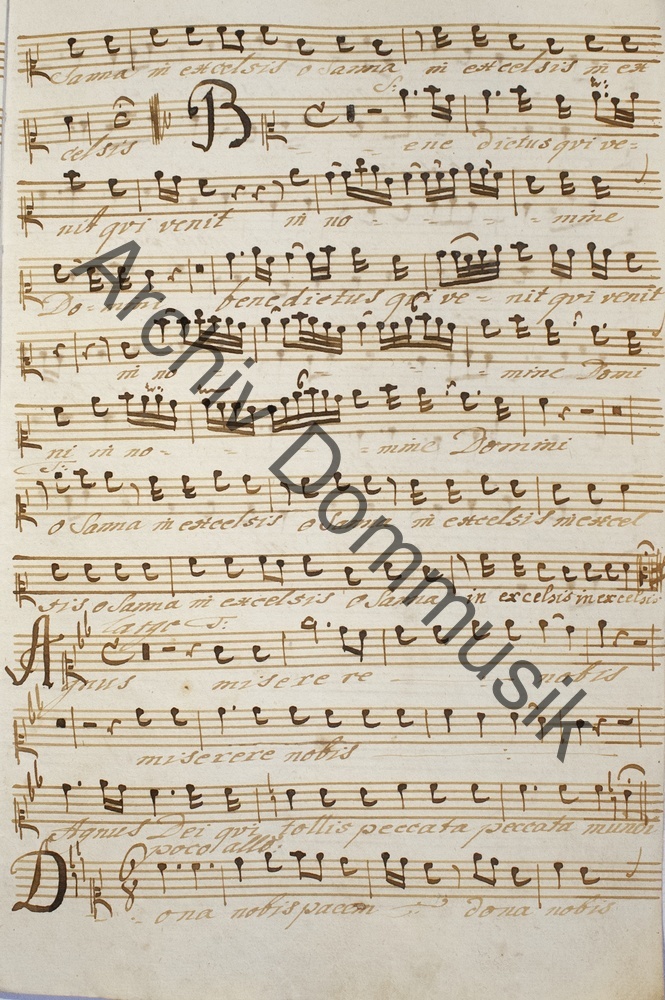 Sanna in excelsis o Sanna in excelsis in ex
celsis B S:
ene dictus qui ve=
nit qui venit in no - - - - mine
Do=mini benedictus qui ve= nit qui venit
in no - - - - mine Domi
ni in no= - - - =mine Domini
S:
o Sanna in excelsis o Sanna in excelsis in excel
sis o Sanna in excelsis o Sanna in excelsis in excelsis
largo S:
Agnus miserere re nobis
miserere nobis
Agnus Dei qui tollis peccata peccata mundi
poco allo:
Dona nobis pacem dona nobis
Archiv Dommusik